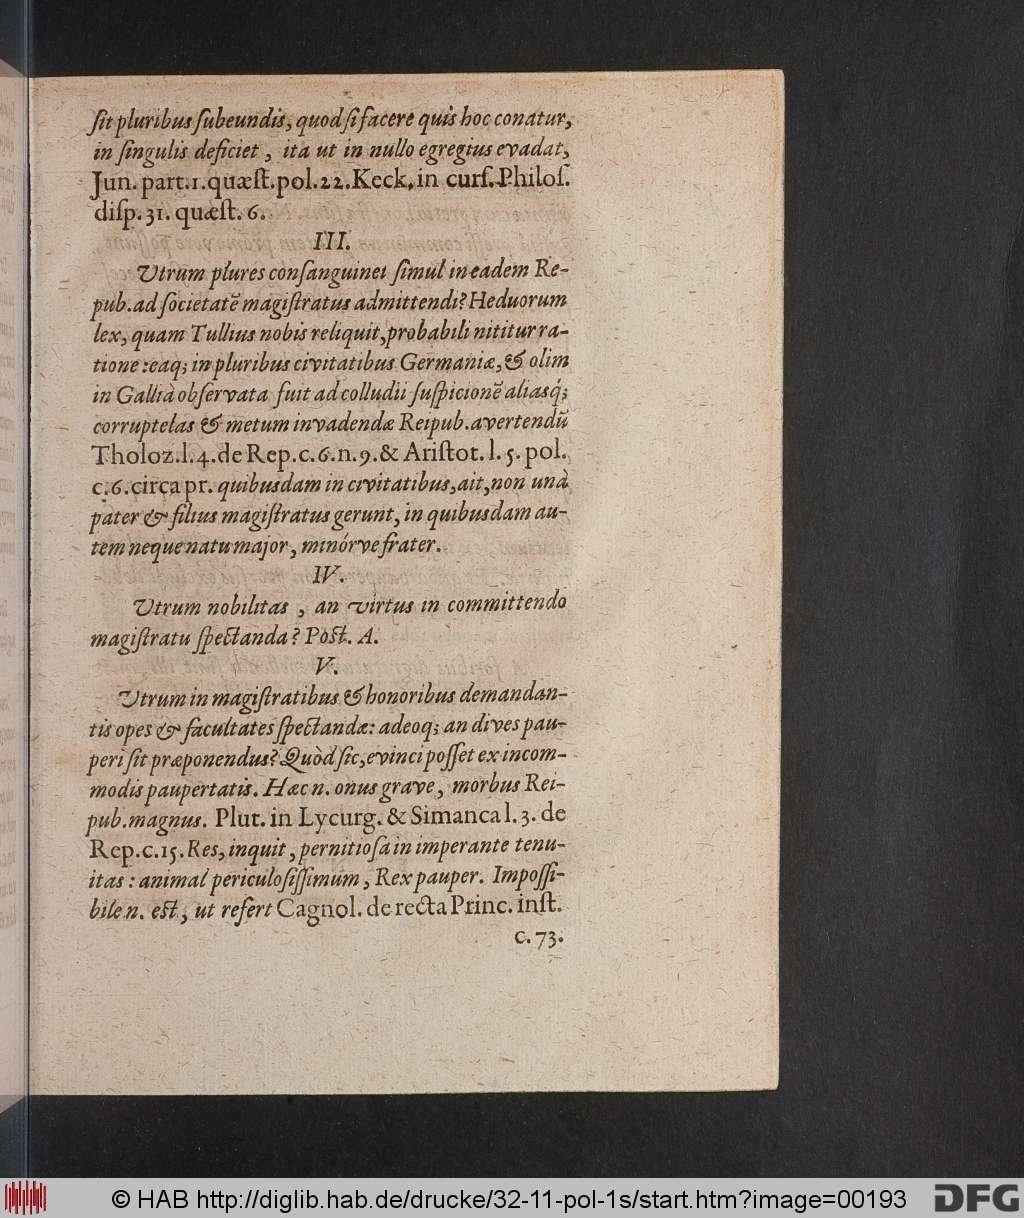 ſit pluribus ſubeundis, quod ſi facere quis hoc conatur,
in ſingulis deficiet, ita ut in nullo egregius evadat,
Jun. part. 1. quæſt. pol. 22. Keck. in curſ. Philoſ.
diſp. 31. quæſt. 6.
III.
Utrum plures conſanguinei ſimul in eadem Re-
pub. ad ſocietatē magiſtratus admittendi? Heduorum
lex, quam Tullius nobis reliquit, probabili nititur ra-
tione: eaq; in pluribus civitatibus Germaniæ, & olim
in Galliâ obſervata fuit ad colludii ſuſpicionē aliasq́;
corruptelas & metum invadendæ Reipub. avertendū
Tholoz. l. 4. de Rep. c. 6. n. 9. & Ariſtot. l. 5. pol.
c. 6. circa pr. quibusdam in civitatibus, ait, non unà
pater & filius magiſtratus gerunt, in quibusdam au-
tem neque natu major, minórve frater.
IV.
Utrum nobilitas, an virtus in committendo
magiſtratu ſpectanda? Poſt. A.
V.
Utrum in magiſtratibus & honoribus demandan-
tis opes & facultates ſpectandæ: adeoq; an dives pau-
peri ſit præponendus? Quòd ſic, evinci poſſet ex incom-
modis paupertatis. Hæc n. onus grave, morbus Rei-
pub. magnus. Plut. in Lycurg. & Simanca l. 3. de
Rep. c. 15. Res, inquit, pernitioſa in imperante tenu-
itas: animal periculoſiſſimum, Rex pauper. Impoſſi-
bile n. eſt, ut refert Cagnol. de recta Princ. inſt.
c. 73.
© HAB http://diglib.hab.de/drucke/32-11-pol-1s/start.htm?image=00193
DFG